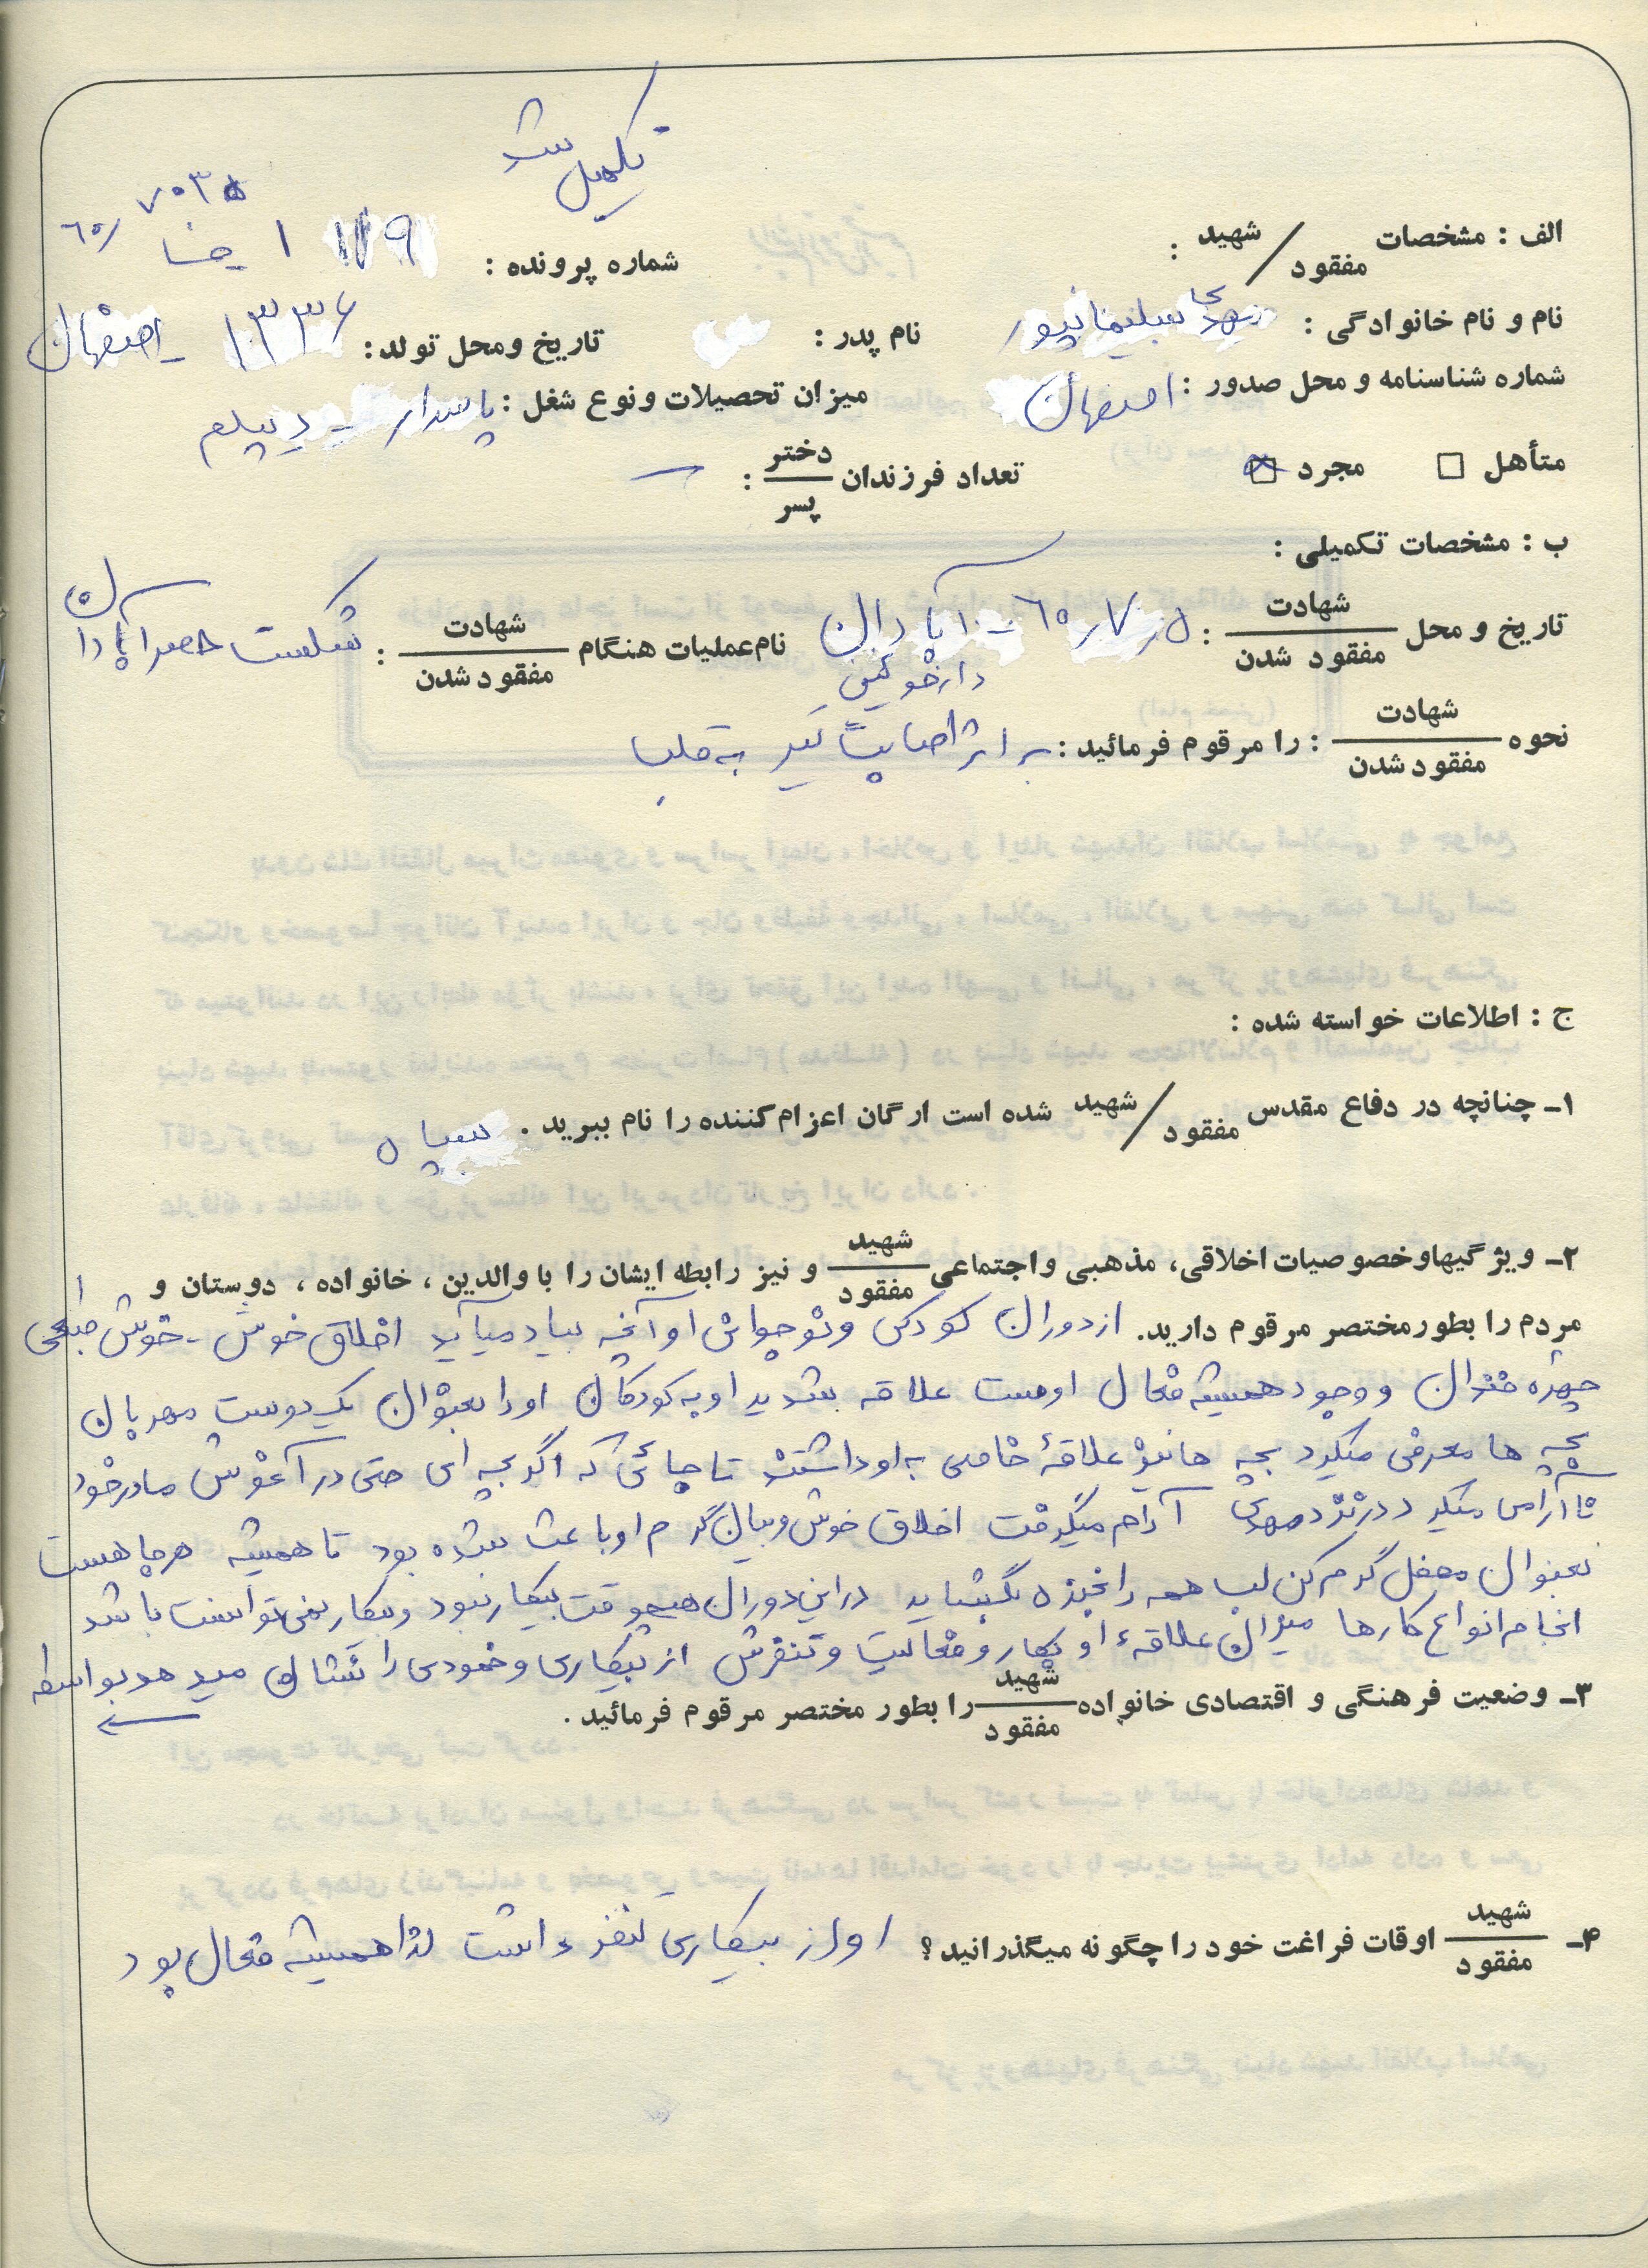 تکمیل شد
۷۰۳۵
الف : مشخصات شهید / مفقود :
شماره پرونده : ۱۱۹ ۱ ۶۰/
نام و نام خانوادگی : مهدی سلیمانپور نام پدر : تاریخ و محل تولد : ۱۳۳۶ - اصفهان
شماره شناسنامه و محل صدور : اصفهان میزان تحصیلات و نوع شغل : پاسدار - دیپلم
متأهل □ مجرد ☒ تعداد فرزندان دختر / پسر : —
ب : مشخصات تکمیلی :
تاریخ و محل شهادت / مفقود شدن : ۶۰/۷/۵ - آبادان دارخوئین نام عملیات هنگام شهادت / مفقود شدن : شکست حصر آبادان
نحوه شهادت / مفقود شدن : را مرقوم فرمائید : بر اثر اصابت تیر به قلب
ج : اطلاعات خواسته شده :
۱ـ چنانچه در دفاع مقدس شهید / مفقود شده است ارگان اعزام کننده را نام ببرید . سپاه
۲ـ ویژگیها و خصوصیات اخلاقی، مذهبی و اجتماعی شهید / مفقود و نیز رابطه ایشان را با والدین ، خانواده ، دوستان و
مردم را بطور مختصر مرقوم دارید. از دوران کودکی و نوجوانی او آنچه بیاد میآید اخلاق خوش - خوش طبعی
چهره خندان و وجود همیشه فعال اوست علاقه شدید او به کودکان او را بعنوان یک دوست مهربان
بچه ها معرفی میکرد بچه ها نیز علاقهٔ خاصی به او داشتند تا جائی که اگر بچه ای حتی در آغوش مادر خود
ناآرامی میکرد در نزد مهدی آرام میگرفت اخلاق خوش و بیان گرم او باعث شده بود تا همیشه هرجا هست
بعنوان محفل گرم کن لب همه را بخنده بگشاید در این دوران هیچوقت بیکار نبود و بیکار نمی توانست باشد
انجام انواع کارها میزان علاقهٔ او بکار و فعالیت و تنفرش از بیکاری و خمودی را نشان میدهد بواسطه ←
۳ـ وضعیت فرهنگی و اقتصادی خانواده شهید / مفقود را بطور مختصر مرقوم فرمائید .
۴ـ شهید / مفقود اوقات فراغت خود را چگونه میگذرانید؟ او از بیکاری تنفر داشت لذا همیشه فعال بود